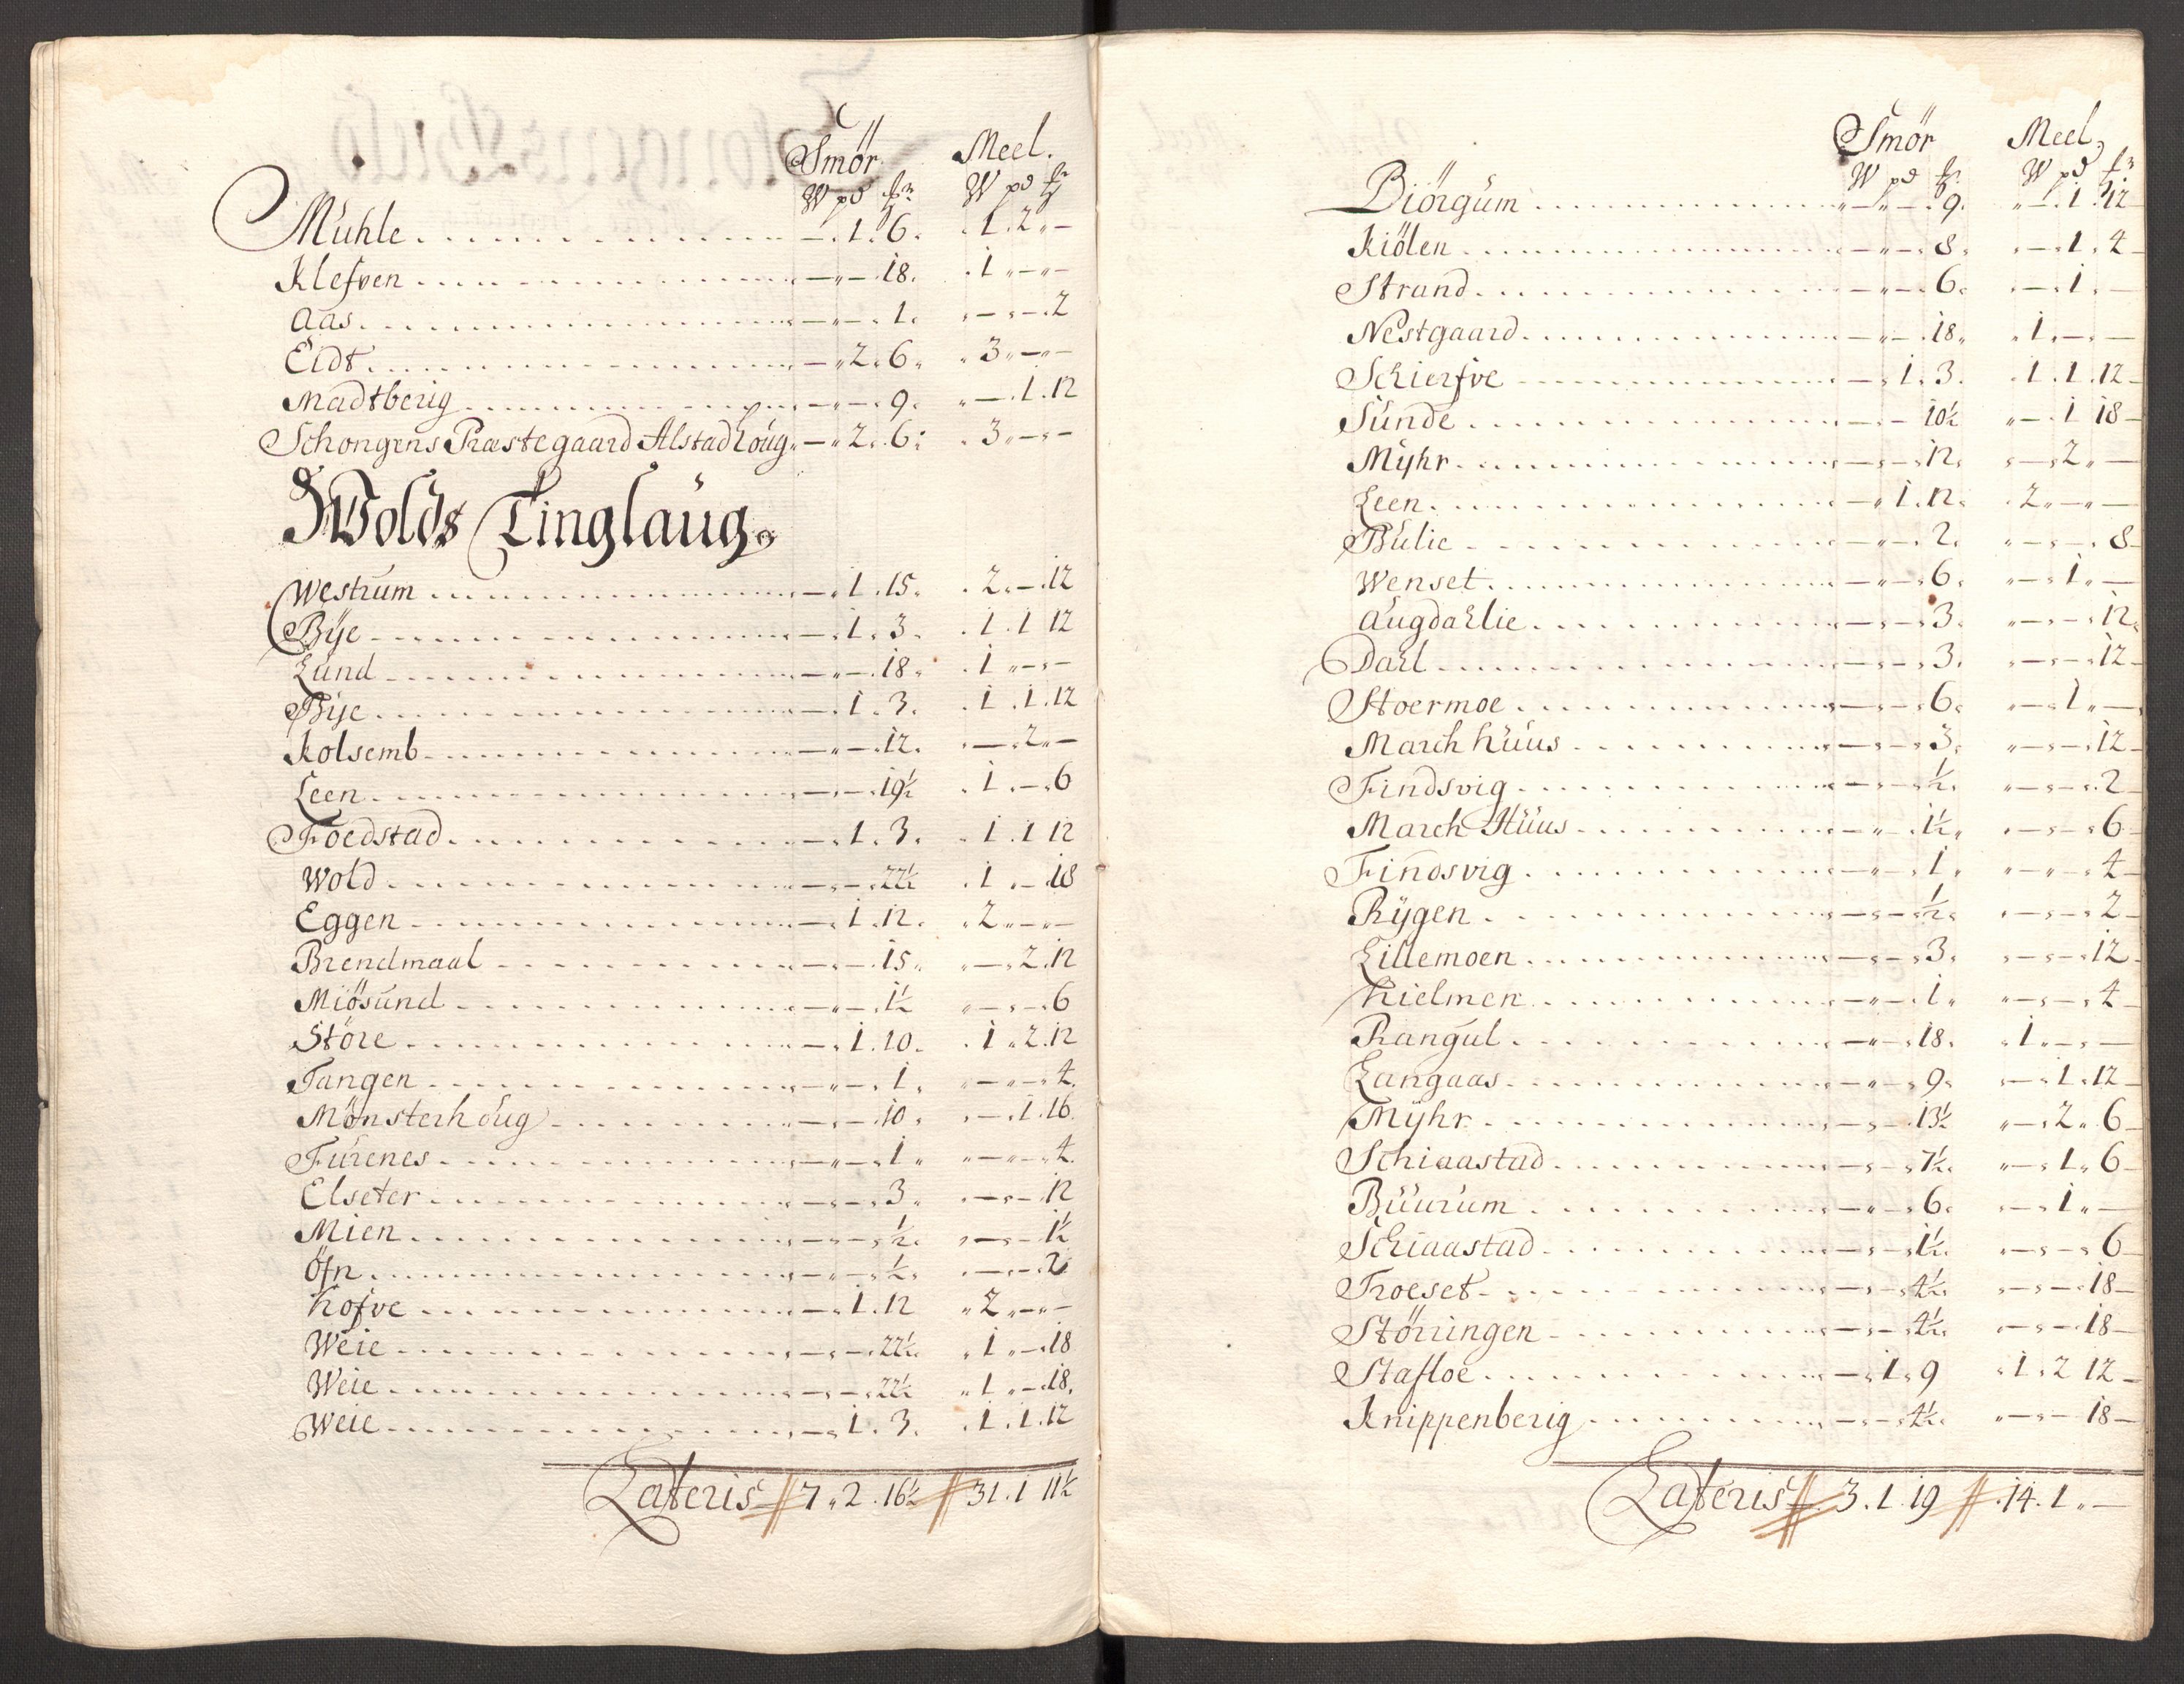 Smör Meel.
W pd W pd
Muhle - . 1 . 6 . . 1 . 2 " -
Klefven - " - . 18 . . 1 " - " -
Aas - " - . 1 . " - " - . 2
Eidt - " 2 . 6 . " 3 " - " -
Madtberig - " - . 9 . " - . 1 . 12
Schongens Præstegaard Alstadhoug - " 2 . 6 . . 3 " - " -
Wolds Tinglaug.
Westrum - . 1 . 15 . . 2 . - . 12
Bÿe - . 1 . 3 . . 1 . 1 12
Lund - " - . 18 . . 1 " - " -
Bÿe - . 1 . 3 . . 1 . 1 . 12
Kolsemb - " - . 12 . " - . 2 " -
Leen - " - . 19½ . 1 . - . 6
Foedstad - . 1 . 3 . . 1 . 1 12
Wold - " - . 22½ . 1 . - 18
Eggen - . 1 . 12 . . 2 " - " -
Brendmaal - " - . 15 . " - . 2 . 12
Miösund - " - . 1½ " - " - . 6
Störe - . 1 . 10 . . 1 . 2 . 12
Tangen - " - . 1 . " - " - . 4
Mönsterhoug - " - . 10 . " - . 1 . 16
Furenes - " - . 1 " " - " - . 4
Elseter - " - . 3 . " - " - 12
Mien - " - . ½ . " - " - 1½
Öfn - " - . ½ . " - " - 2
Hofve - . 1 . 12 " 2 " - " -
Weie - " - . 22½ . 1 " - 18
Weie - " - . 22½ " 1 " - 18 .
Weie - . 1 . 3 . . 1 . 1 . 12
Lateris 7 " 2 . 16½ 31 . 1 11½
Smör Meel,
W pd W pd
Biörgum " - " - . 9 . " - . 1 . 12
Kiölen - " - . 8 . " - . 1 . 4
Strand - " - . 6 . " - . 1 . -
Nestgaard - " - . 18 . " 1 . - " -
Schierfve - . 1 . 3 . . 1 . 1 . 12
Sunde - " - 10½ " - . 1 18
Mÿhr - " - . 12 . " - . 2 " -
Leen - " 1 . 12 . . 2 " - " -
Bulie - " - . 2 . " - " - . 8
Wenset - " - . 6 . " - . 1 " -
Augdahlie - " - . 3 . " - " - . 12
Dahl - " - . 3 . " - " - . 12
Stoermoe - " - . 6 . " - . 1 " -
March huus - " - . 3 . " - " - . 12
Findsvig - " - . ½ . " - " - . 2
March Huus - " - . 1½ . " - " - . 6
Findsvig - " - . 1 . " - " - . 4
Rÿgen - " - . ½ . " - " - . 2
Lillemoen - " - . 3 . " - " - . 12
Hielmen - " - . 1 . " - " - . 4
Rangul - " - . 18 . . 1 " - " -
Langaas - " - . 9 . " - . 1 . 12
Mÿhr - " - . 13½ " - . 2 . 6
Schiaastad - " - . 7½ . " - . 1 . 6
Buurum - " - . 6 . " - . 1 " -
Schiaastad - " - . 1½ . " - " - . 6
Troeset - " - . 4½ . " - " - . 18
Störingen - " - . 4½ . " - " - . 18
Stafloe - . 1 . 9 . 1 . 2 12
Knippenberig - " - . 4½ . " - " - 18
Lateris 3 . 1 19 . 14 . 1 " -